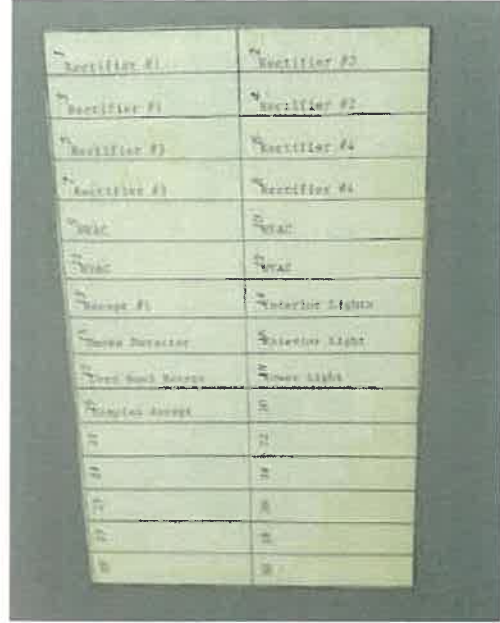 Rectifier #1 Rectifier #2
Rectifier #1 Rectifier #2
Rectifier #3 Rectifier #4
Rectifier #3 Rectifier #4
HVAC HVAC
HVAC HVAC
Recept #1 Interior Lights
Smoke Detector Exterior Light
Recept Tower Light
Recept 20
21 22
23 24
25 26
27 28
29 30